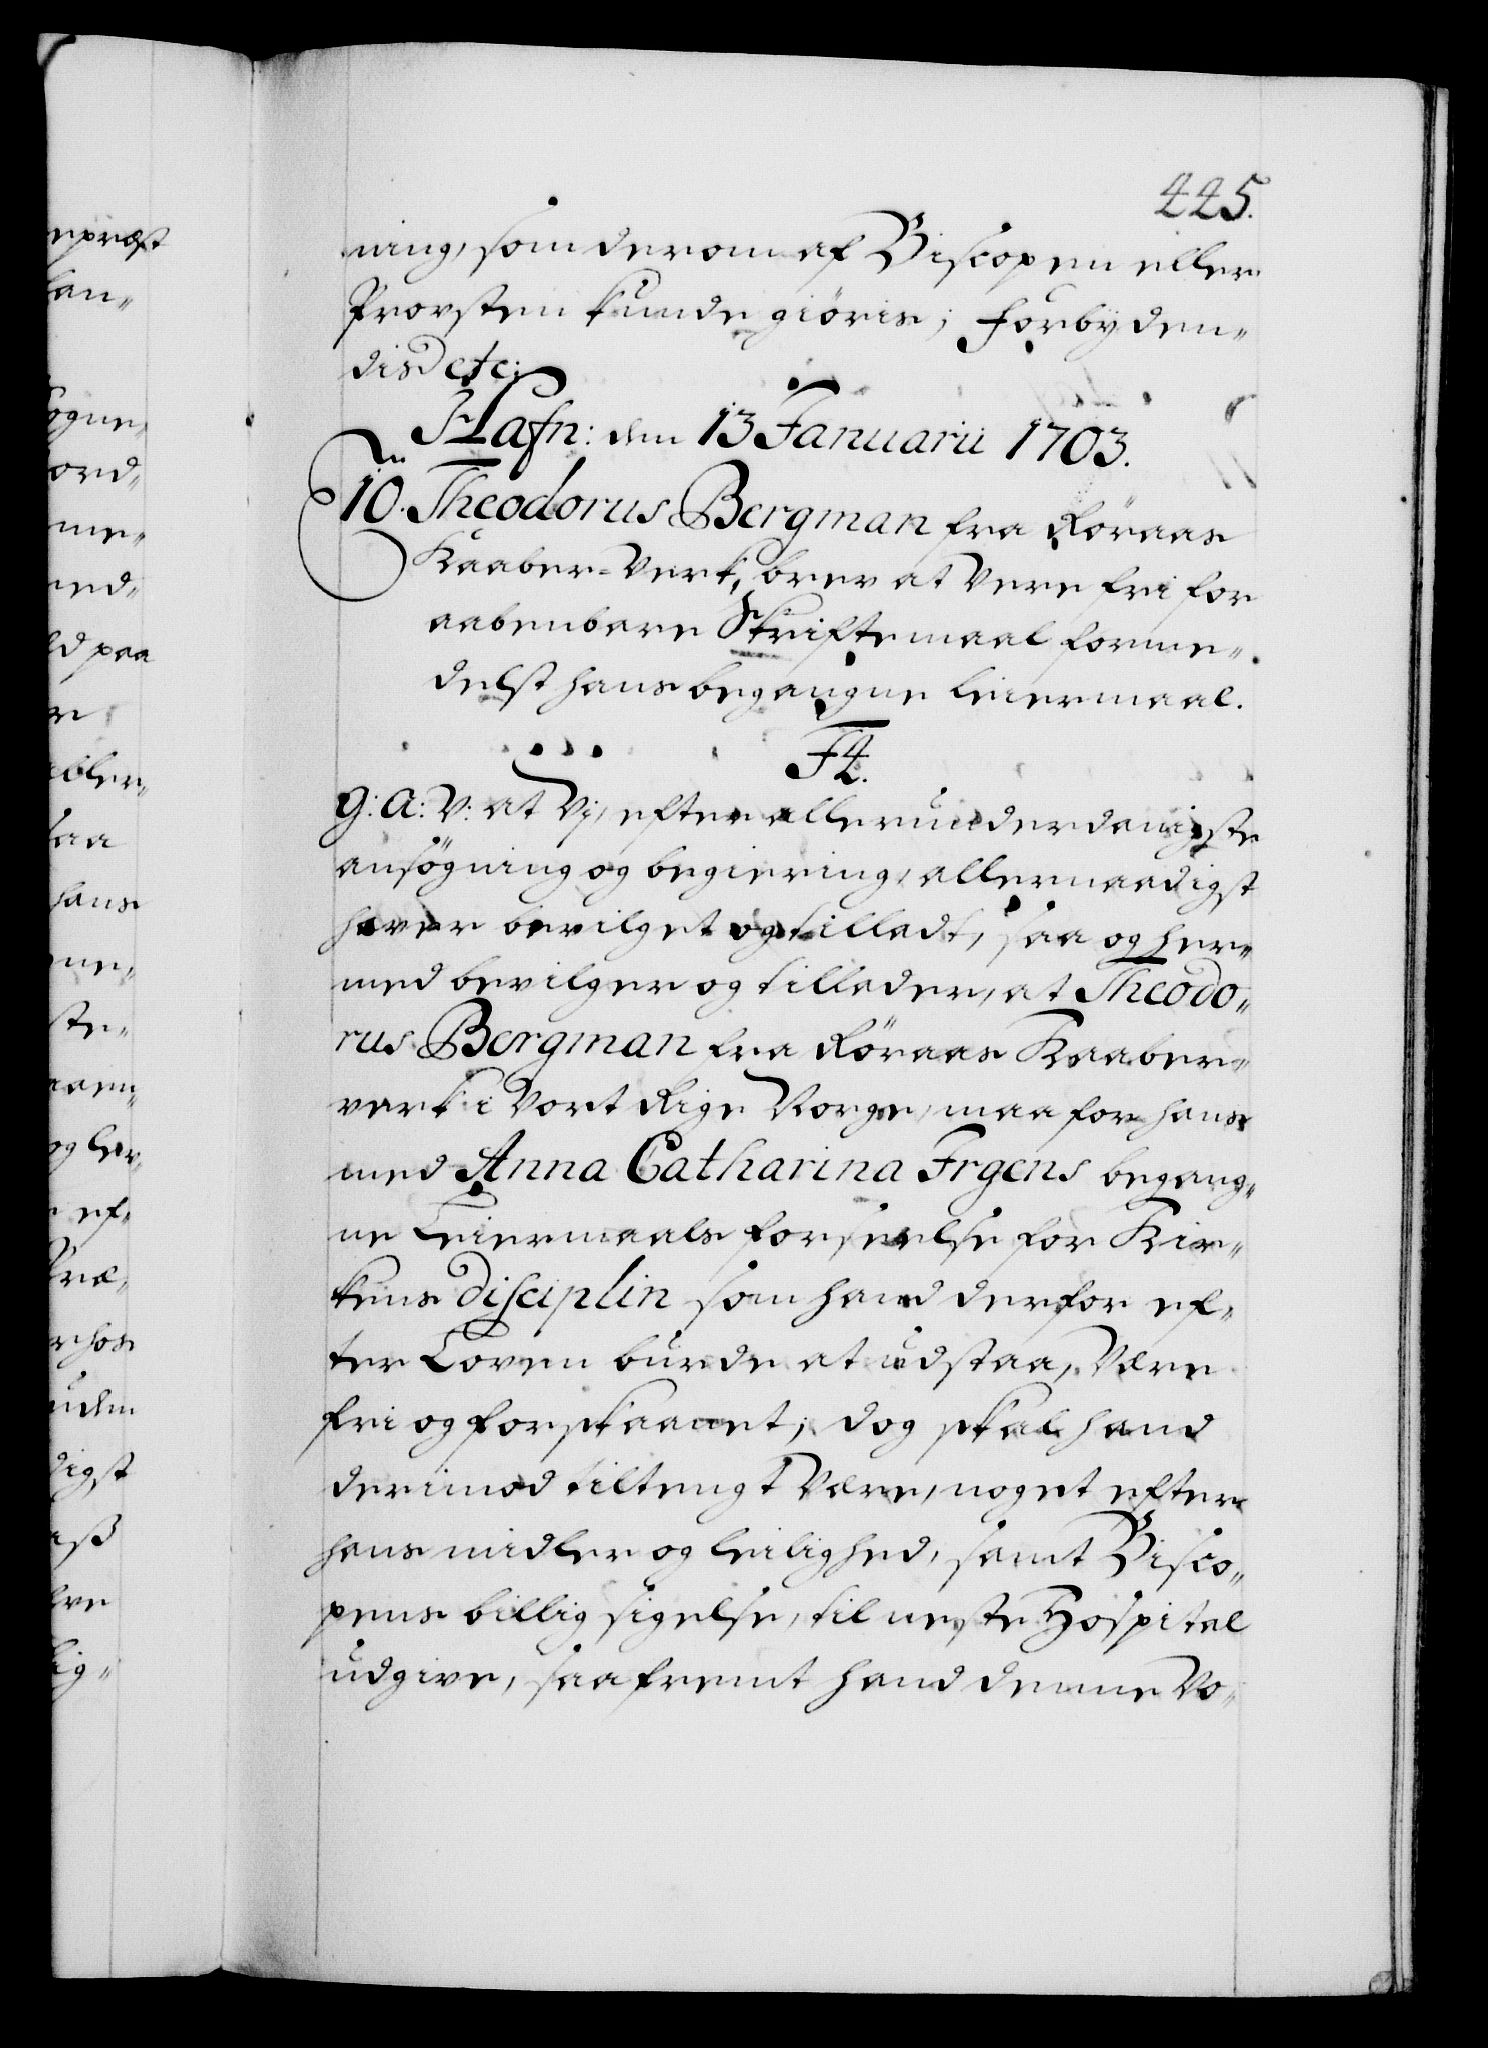 445.
ning, som derom af Biscopen eller
Provsten kunde giøris; Forbyden-
dis etc:
Hafn: den 13 Januarii 1703.
10. Theodorus Bergman fra Röraas
Kaaber-Verk, brev at Vere fri for
aabenbare Skriftemaal forme-
delst hans begangne leiermaal.
F4.
G: A: V: at Vj, efter allerunderdanigste
ansögning og begiering, allernaadigst
haver bevilget og tilladt, saa og her-
med bevilger og tillader, at Theodo-
rus Bergman fra Röraas Kaaber-
verk i Vort Rige Norge, maa for hans
med Anna Catharina Irgens begang-
ne Leiermaals forseelse for Kir-
kens disciplin som hand derfor ef-
ter Loven burde at udstaa, Være
fri og forskaanet; dog skal hand
derimod tiltengt Være, noget efter
hans midler og leilighed, samt Bisco-
pens billig sigelse, til neste Hospital
udgive, saafremt hand denne Vo-
epræst
an-
ogne,
ord-
me-
ned-
ld paa
r
bler-
saa
hans
ne,
ste-
aaen-
og ler-
ef-
Præ-
rhos
uden
digst
aß
lve
lig-